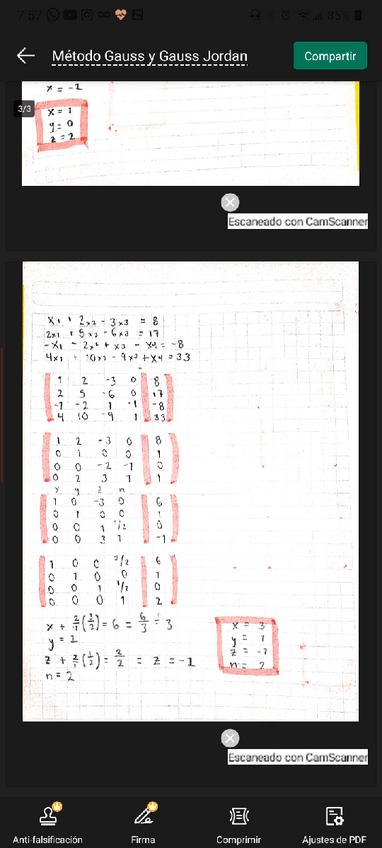 7:57
85%
Método Gauss y Gauss Jordan
Compartir
3/3
x = -1
x = 1
y = 0
z = 2
Escaneado con CamScanner
x1 + 2x2 - 3x3 = 8
2x1 + 5x2 - 6x3 = 17
-x1 - 2x2 + x3 - x4 = -8
4x1 + 10x2 - 9x3 + x4 = 33
1 2 -3 0 8
2 5 -6 0 17
-1 -2 1 -1 -8
4 10 -9 1 33
1 2 -3 0 8
0 1 0 0 1
0 0 -2 -1 0
0 2 3 1 1
x y z n
1 0 -3 0 6
0 1 0 0 1
0 0 1 1/2 0
0 0 3 1 -1
1 0 0 3/2 6
0 1 0 0 1
0 0 1 1/2 0
0 0 0 1 2
= 6 = 6/3 = 3
y = 1
= z = -1
n = 2
x = 3
y = 1
z = -1
n = 2
Escaneado con CamScanner
Anti-falsificación
Firma
Comprimir
Ajustes de PDF